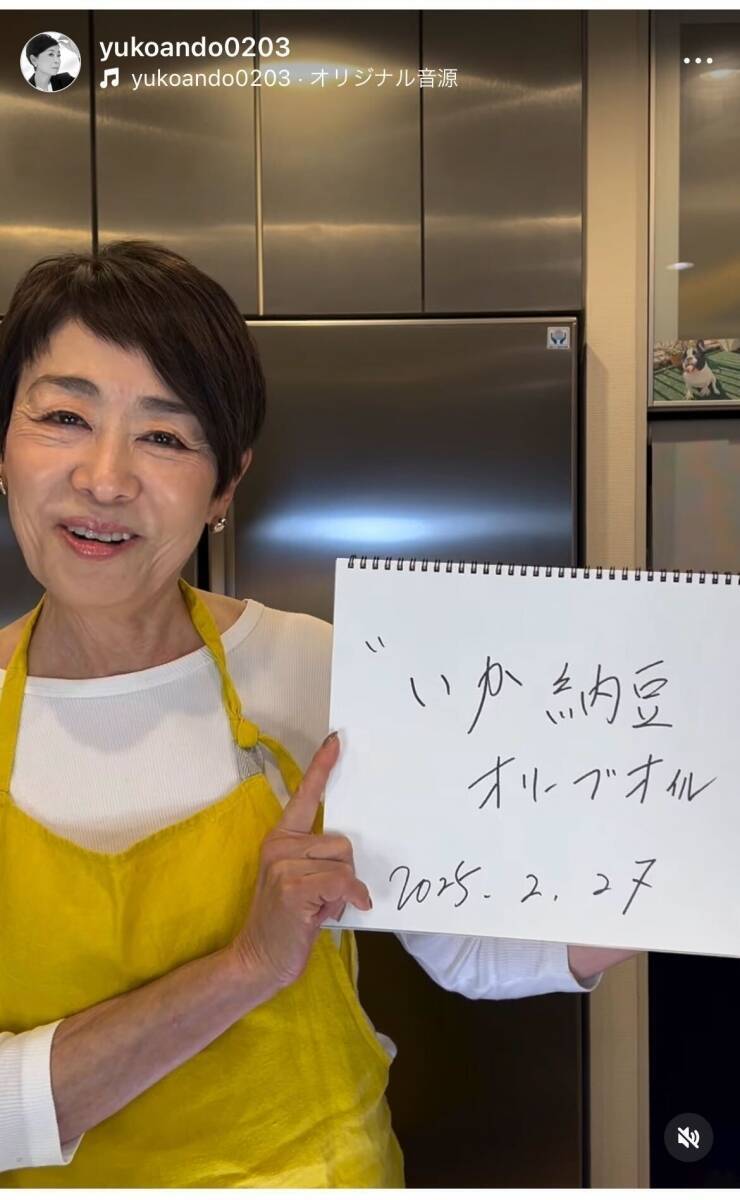 yukoando0203
yukoando0203・オリジナル音源
"いか納豆
オリーブオイル
2025. 2. 27